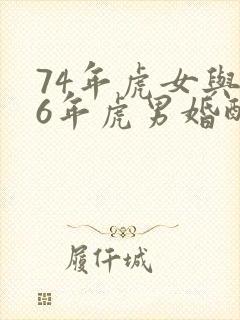 74年虎女與
6年虎男婚配
履仟城